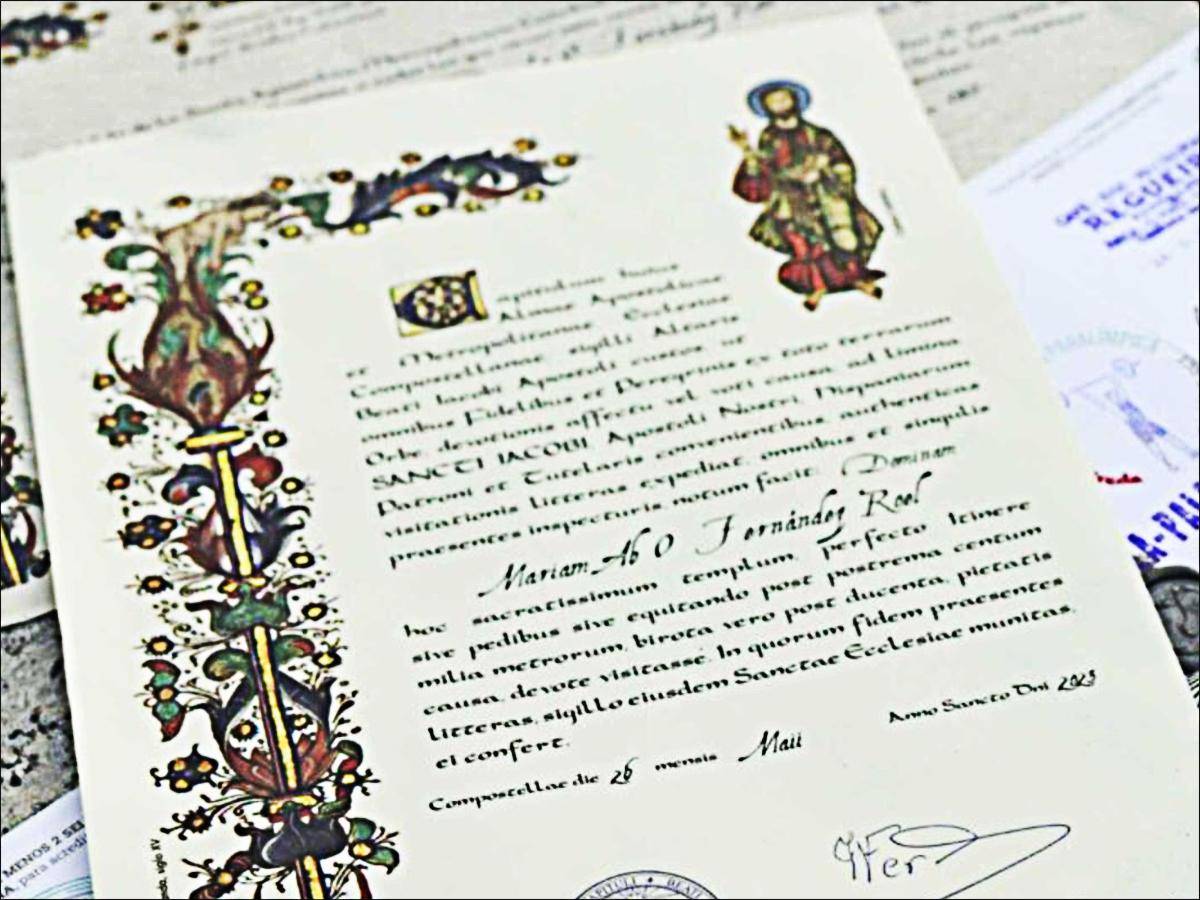 Capitulum huius
Almae Apostolicae
et Metropolitanae Ecclesiae
Compostellanae, sigilli Altaris
Beati Iacobi Apostoli custos, ut
omnibus Fidelibus et Peregrinis ex toto terrarum
Orbe, devotionis affectu vel voti causa, ad limina
SANCTI IACOBI, Apostoli Nostri, Hispaniarum
Patroni et Tutelaris convenientibus, authenticas
visitationis litteras expediat, omnibus et singulis
praesentes inspecturis notum facit: Dominam
Mariam Ab O Fernández Roel
hoc sacratissimum templum, perfecto Itinere
sive pedibus sive equitando post postrema centum
milia metrorum, birota vero post ducenta, pietatis
causa, devote visitasse. In quorum fidem praesentes
litteras, sigillo eiusdem Sanctae Ecclesiae munitas,
ei confert.
Compostellae die 26 mensis Maii Anno Sancto Dni 2023
CAPITULI BEATI
siglo XV
MENOS 2 SE
A, para
REGUEI
PARALIMPICA
A-PA